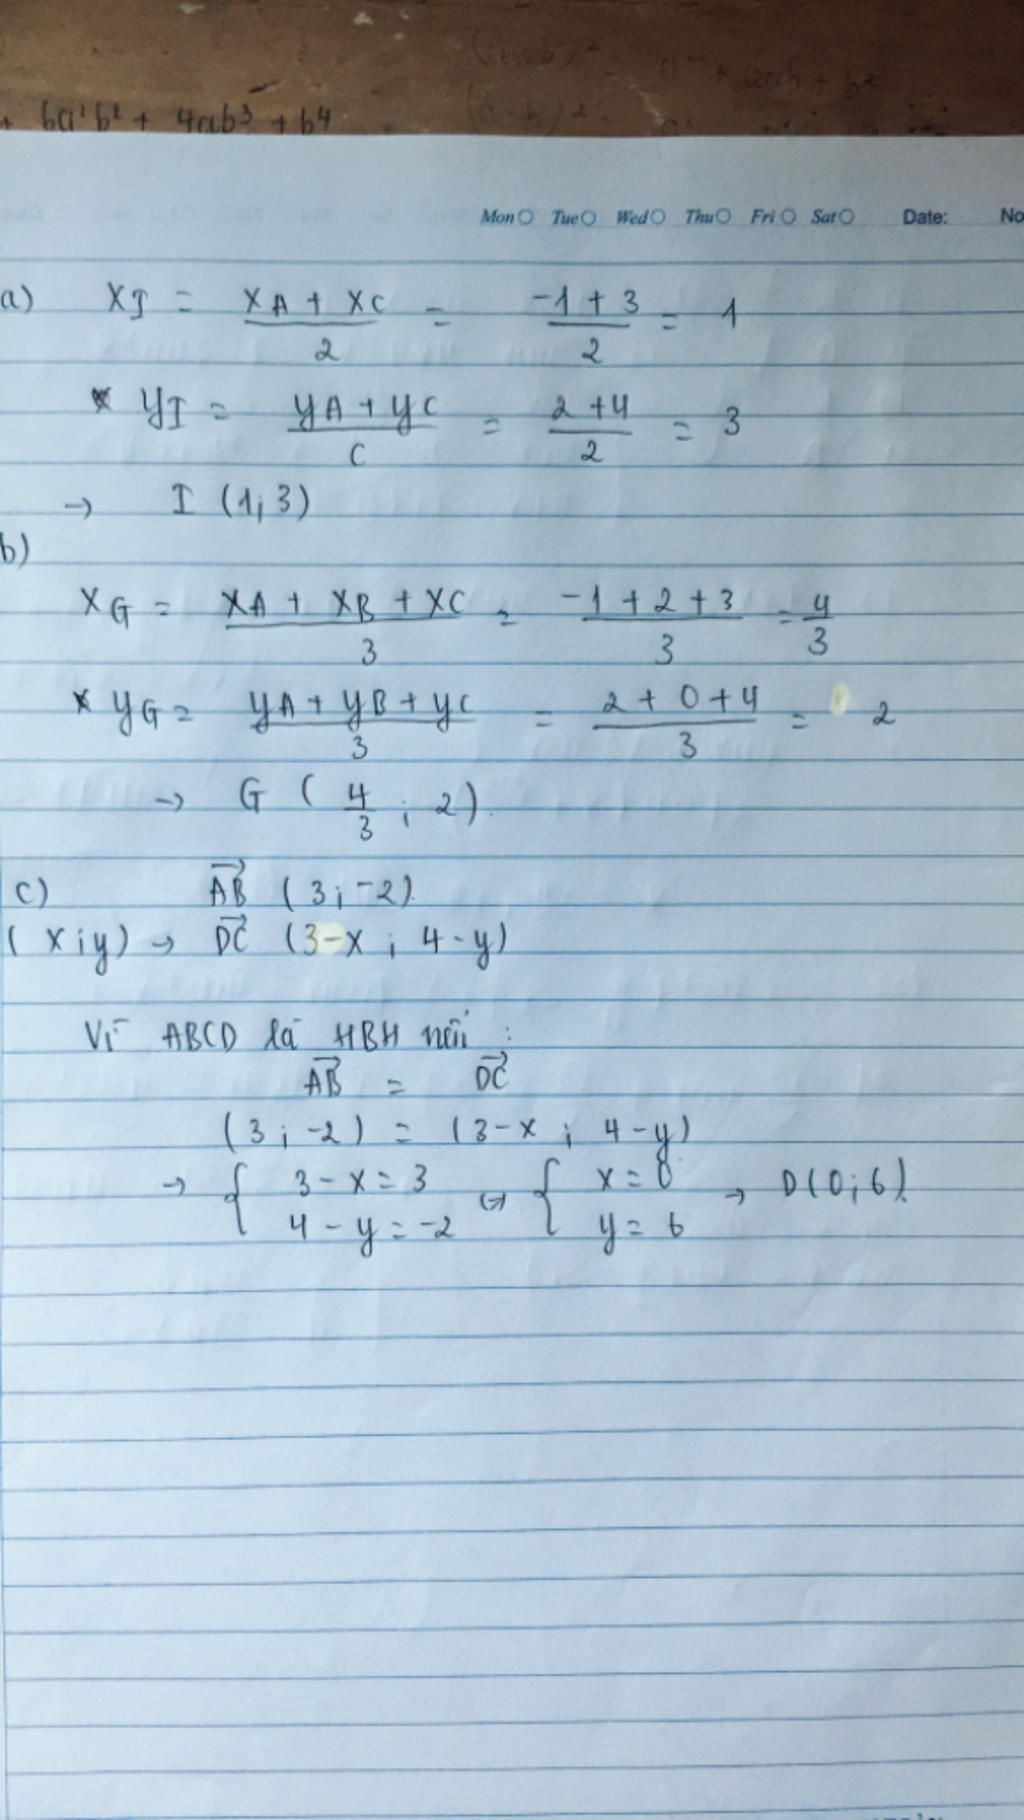 + 6a²b² + 4ab³ + b⁴
Mon Tue Wed Thu Fri Sat Date: No
a) xI = (xA + xC)/2 = (-1 + 3)/2 = 1
* yI = (yA + yC)/C = (2 + 4)/2 = 3
→ I (1; 3)
b)
xG = (xA + xB + xC)/3 = (-1 + 2 + 3)/3 = 4/3
* yG = (yA + yB + yC)/3 = (2 + 0 + 4)/3 = 2
→ G (4/3 ; 2).
c) AB→ (3; -2).
(x;y) → DC→ (3-x ; 4-y)
Vì ABCD là HBH nên :
AB→ = DC→
(3 ; -2) = (3-x ; 4-y)
→ { 3 - x = 3 ⇔ { x = 0 → D(0;6).
4 - y = -2 y = 6